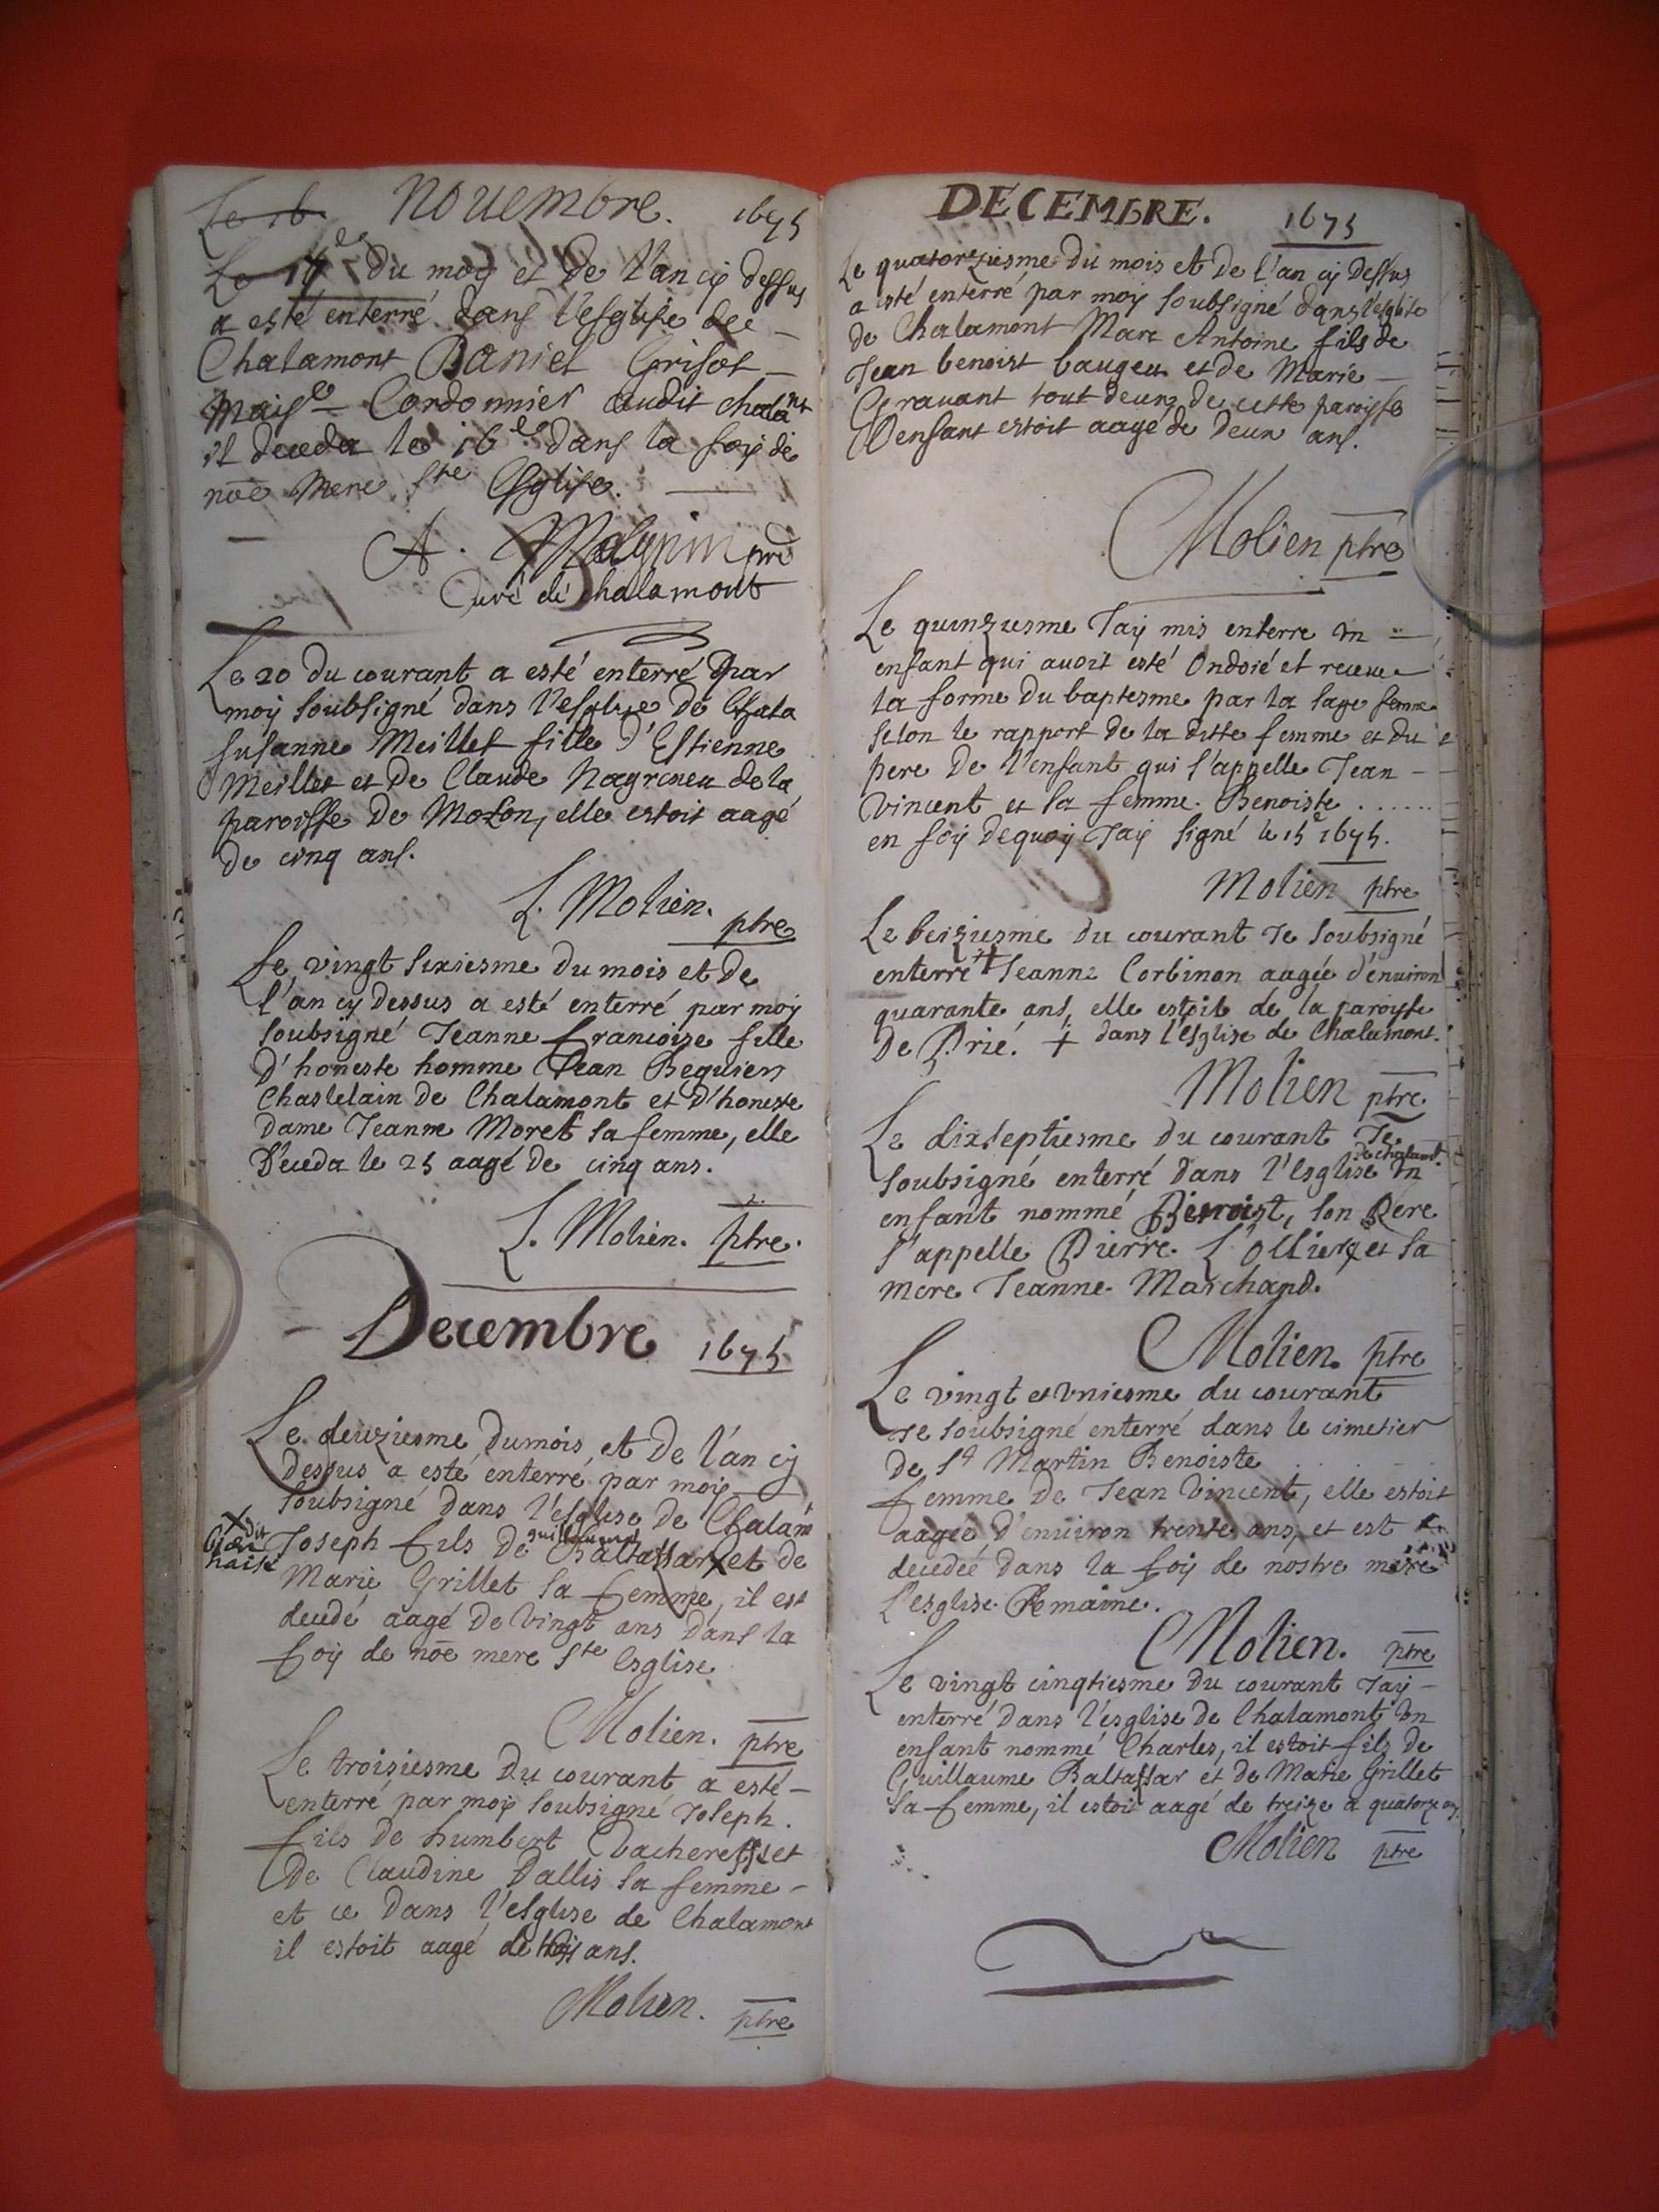 Le 16 Nouembre. 1675
Le 17es Du moy et De l'an cy dessus
a esté enterré dans l'esglise de
Chalamont Daniel Grisot
Cordonnier audit chalant
il deceda le 16es dans la foy de
nōe mere ste Esglise.
A. ptre
Curé de chalamont
Le 20 du courant a esté enterré par
moy soubsigné dans l'esglise de Chala
susanne Meillet fille d'Estienne
Meillet et de Claude de la
paroisse de Molon, elle estoit aagé
de cinq ans.
L. Molien.
ptre
Le vingt sixiesme du mois et de
l'an cy dessus a esté enterré par moy
soubsigné Jeanne francoise fille
d'honeste homme Jean Beguier
Chastelain de Chalamont et d'honeste
dame Jeanne Moret sa femme, elle
deceda le 25 aagé de cinq ans.
L. Molien. ptre.
Decembre 1675
Le deuziesme du mois, et de l'an cy
dessus a esté enterré par moy
soubsigné dans l'esglise de Chalam
Joseph fils de guillaume Baltassar X et de
X dit
Marie Grillet sa femme, il est
decedé aagé de vingt ans dans la
foy de nōe mere ste Esglise
Molien. ptre
Le troisiesme du courant a esté
enterré par moy soubsigné Joseph.
fils de humbert et
de Claudine Dallis sa femme
et ce dans l'esglise de Chalamont
il estoit aagé de trois ans.
Molien. ptre
DECEMBRE. 1675
Le quatorziesme du mois et de l'an cy dessus
a esté enterré par moy soubsigné dans l'esglise
de Chalamont Marc Antoine fils de
Jean benoist baugeu et de Marie
Gravant tout deux de cette paroisse
L'enfant estoit aagé de deux ans.
Molien ptre
Le quinziesme J'ay mis enterre vn
enfant qui auoit esté Ondoié et receue
la forme du baptesme par la sage femme
selon le rapport de la ditte femme et du
pere de l'enfant qui s'appelle Jean
Vincent et sa femme Benoiste ......
en foy dequoy J'ay signé le 15e 1675.
Molien ptre
Le seiziesme du courant Je soubsigné
enterré + Jeanne Corbinon aagée d'enuiron
quarante ans, elle estoit de la paroisse
De Prié. + dans l'Esglise de Chalamont.
Molien ptre
Le dixseptiesme du courant Je
de chalamt.
soubsigné enterré dans l'Esglise vn
enfant nommé Benoist, son Pere
s'appelle Pierre L'ollier et sa
mere Jeanne Marchand.
Molien. ptre
Le vingt et vniesme du courant
Je soubsigné enterré dans le cimetier
de St Martin Benoiste . . . . .
femme de Jean Vincent, elle estoit
aagée d'enuiron trente ans, et est
decedeé dans la foy de nostre mere
L'esglise Romaine.
Molien. ptre
Le vingt cinqtiesme du courant J'ay
enterré dans l'esglise de Chalamont vn
enfant nommé Charles, il estoit fils de
Guillaume Baltassar et de Marie Grillet
sa femme, il estoit aagé de treize a quatorze ans.
Molien ptre